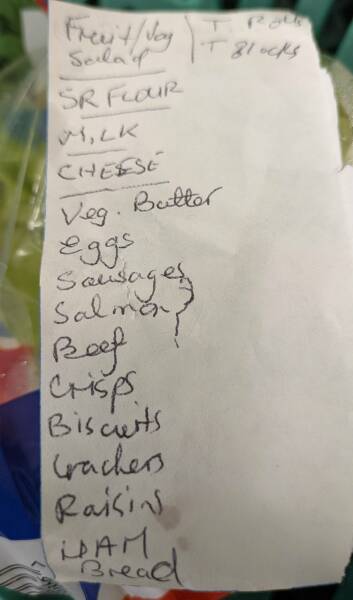 Fruit/Veg
Salad
T. Rolls
T Blocks
SR FLOUR
MILK
CHEESE
Veg. Butter
eggs
Sausages
Salmon
Beef
Crisps
Biscuits
Crackers
Raisins
HAM
Bread